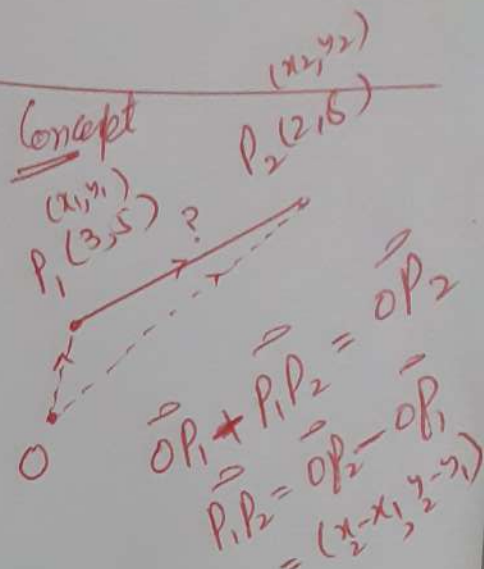 Concept
(x₁,y₁)
P₁(3,5)
?
(x₂,y₂)
P₂(2,6)
O
→OP₁ + →P₁P₂ = →OP₂
→P₁P₂ = →OP₂ - →OP₁
= (x₂-x₁, y₂-y₁)